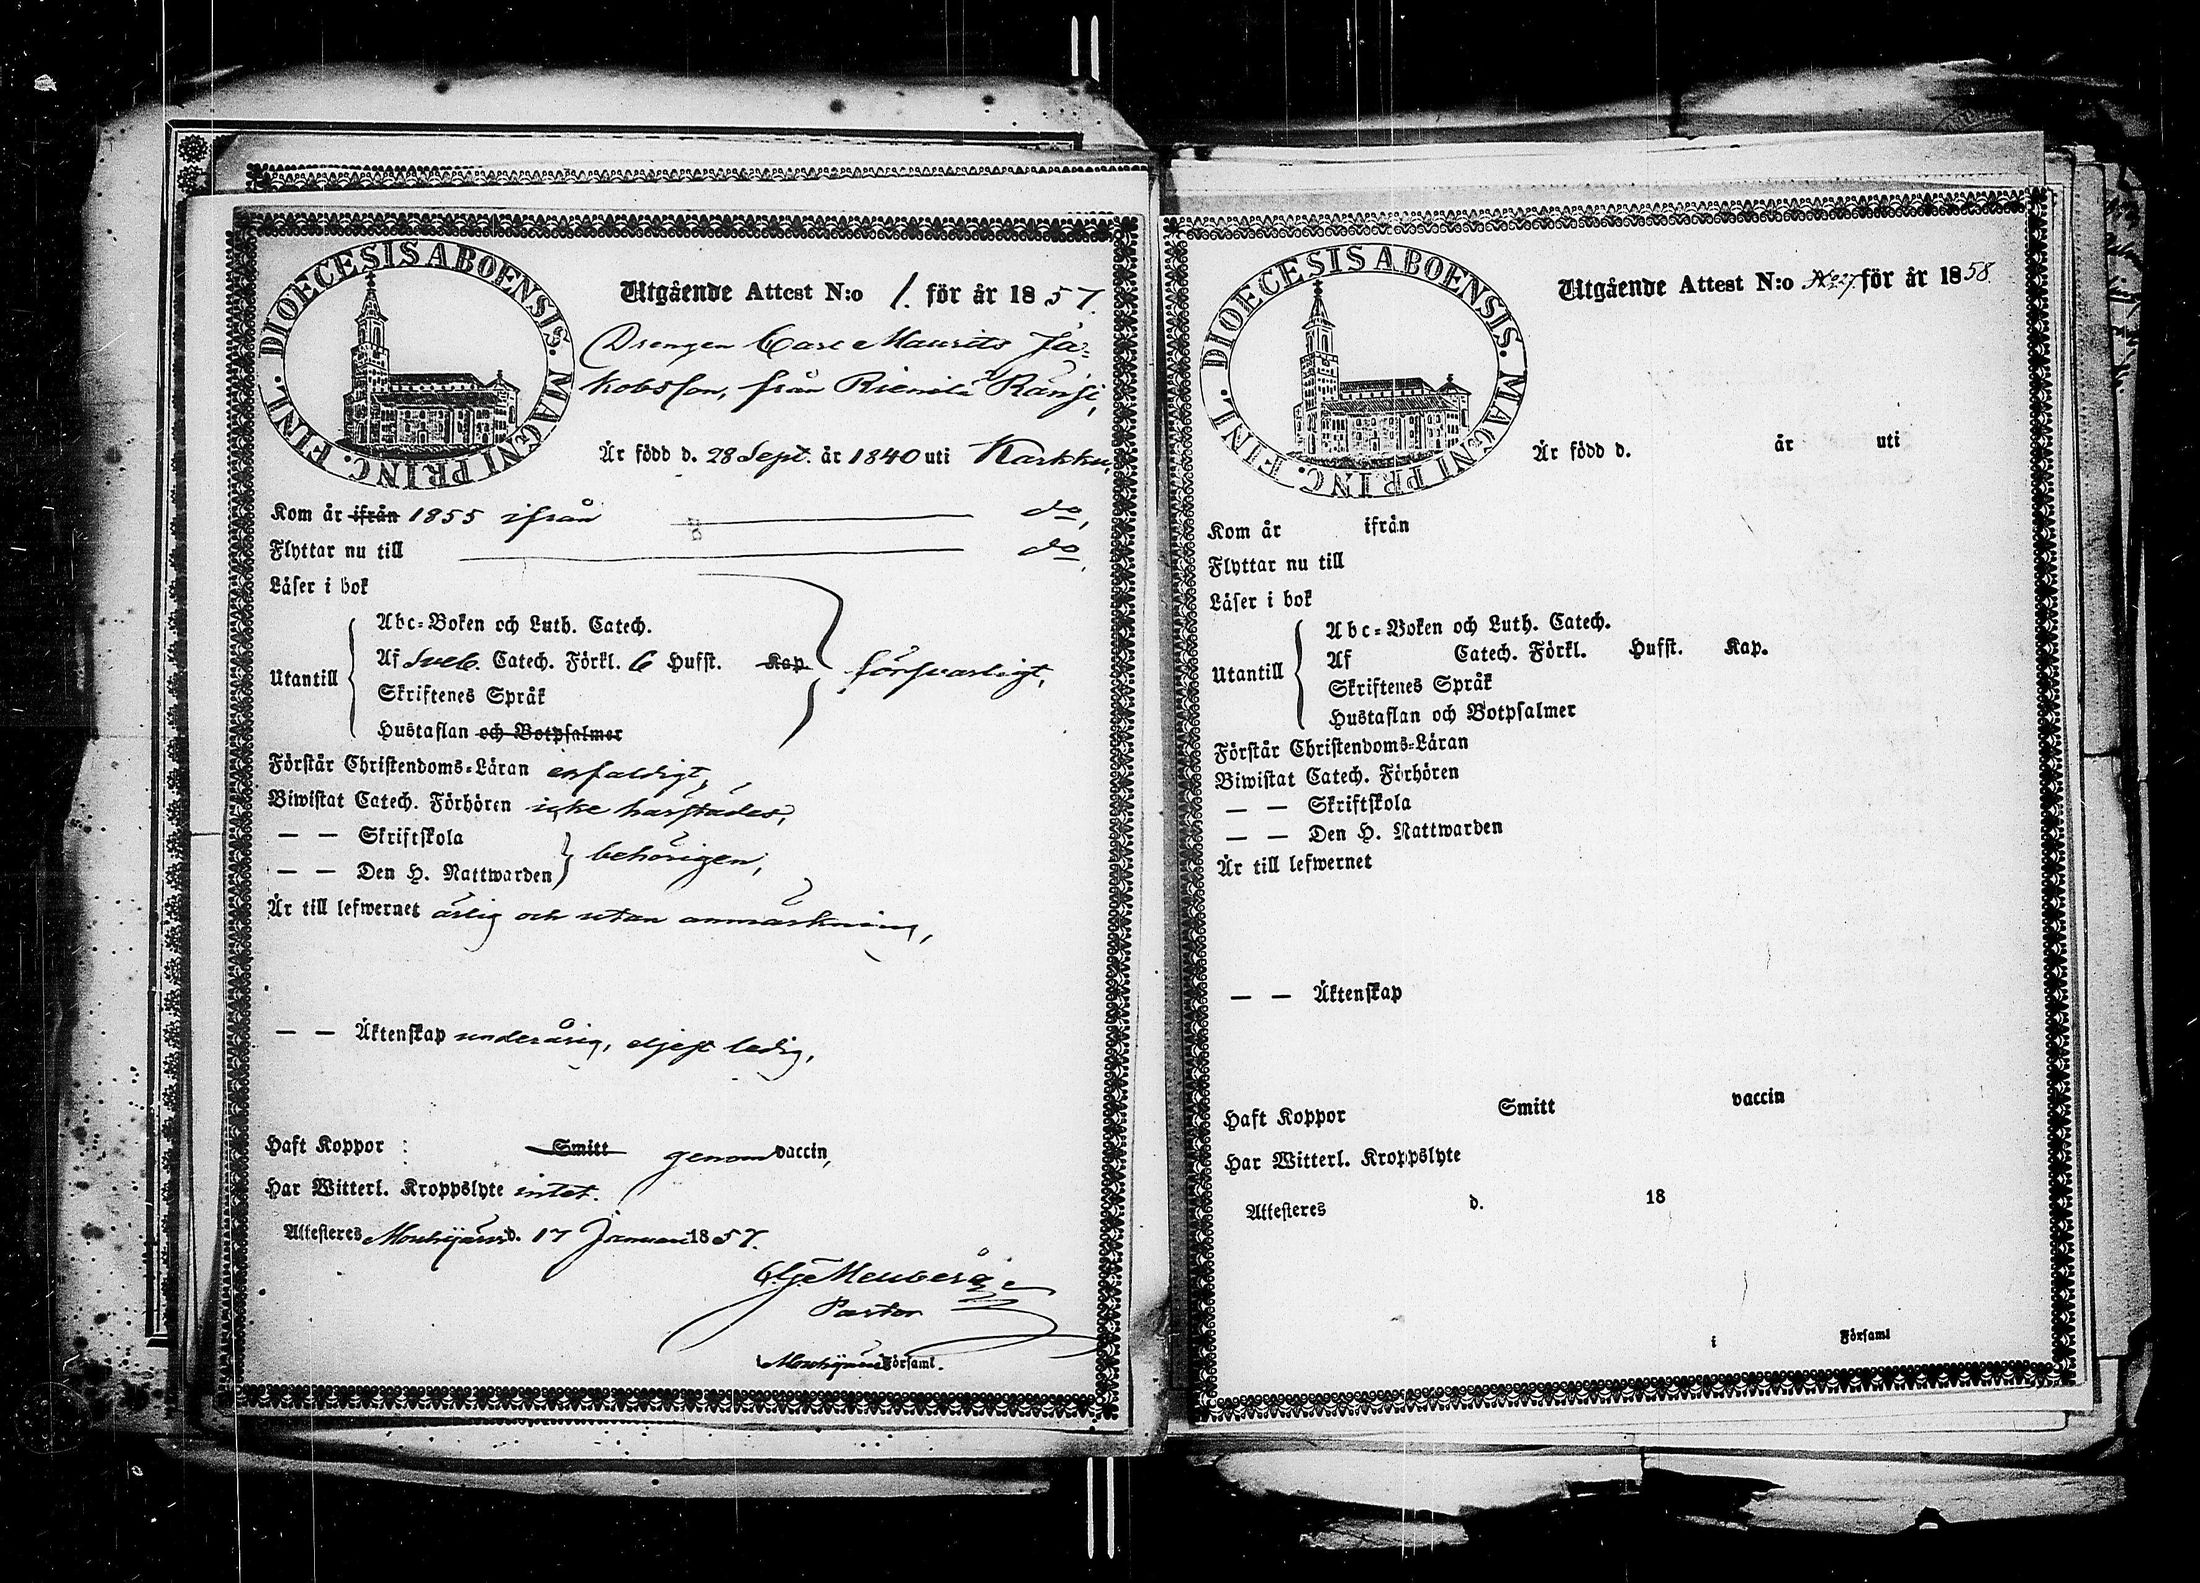 DIOECESIS ABOENSIS. MAGNI PRINC. FINL.
Utgående Attest N:o 1. för år 1857.
Drengen Carl Maurits Ja-
kobsson, från Riemilä Ränsi,
Är född d. 28 Sept. år 1840 uti Karkku,
Kom år ifrån 1855 ifrån do,
Flyttar nu till do,
Läser i bok
Abc-Boken och Luth. Catech.
Utantill Af Sveb. Catech. Förkl. 6 Hufst. Kap försvarligt,
Skriftenes Språk
Hustaflan och Botpsalmer
Förstår Christendoms-Läran enfaldigt,
Biwistat Catech. Förhören icke härstädes,
— — Skriftskola
— — Den H. Nattwarden behörigen,
Är till lefwernet ärlig och utan anmärkning,
— — Äktenskap underårig, eljest ledig,
Haft Koppor : Smitt genom vaccin,
Har Witterl. Kroppslyte intet.
Attesteres Mouhijärvi d. 17 Januari 1857.
Pastor
i Mouhijärvi Församl.
DIOECESIS ABOENSIS. MAGNI PRINC. FINL.
Utgående Attest N:o för år 1858.
Är född d. år uti
Kom år ifrån
Flyttar nu till
Läser i bok
Abc-Boken och Luth. Catech.
Utantill Af Catech. Förkl. Hufst. Kap.
Skriftenes Språk
Hustaflan och Botpsalmer
Förstår Christendoms-Läran
Biwistat Catech. Förhören
— — Skriftskola
— — Den H. Nattwarden
Är till lefwernet
— — Äktenskap
Haft Koppor Smitt vaccin
Har Witterl. Kroppslyte
Attesteres d. 18
i Församl